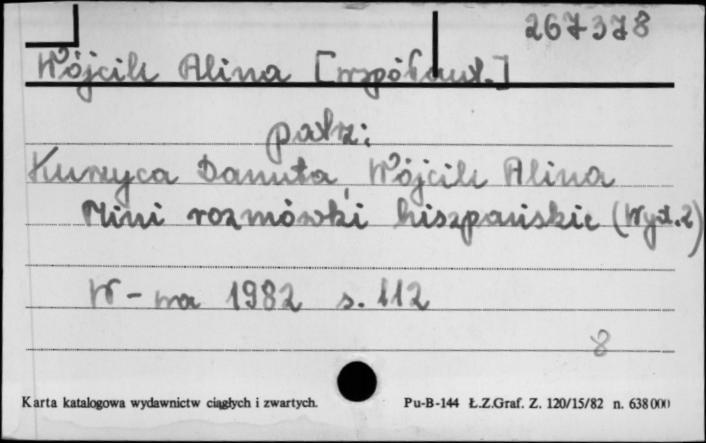 267378
Wójcik Alina [współaut.]
patrz:
Kurzyca Danuta, Wójcik Alina
Mini rozmówki hiszpańskie (Wyd. 2)
W-wa 1982 s. 112
8
Karta katalogowa wydawnictw ciągłych i zwartych. Pu-B-144 Ł.Z.Graf. Z. 120/15/82 n. 638000